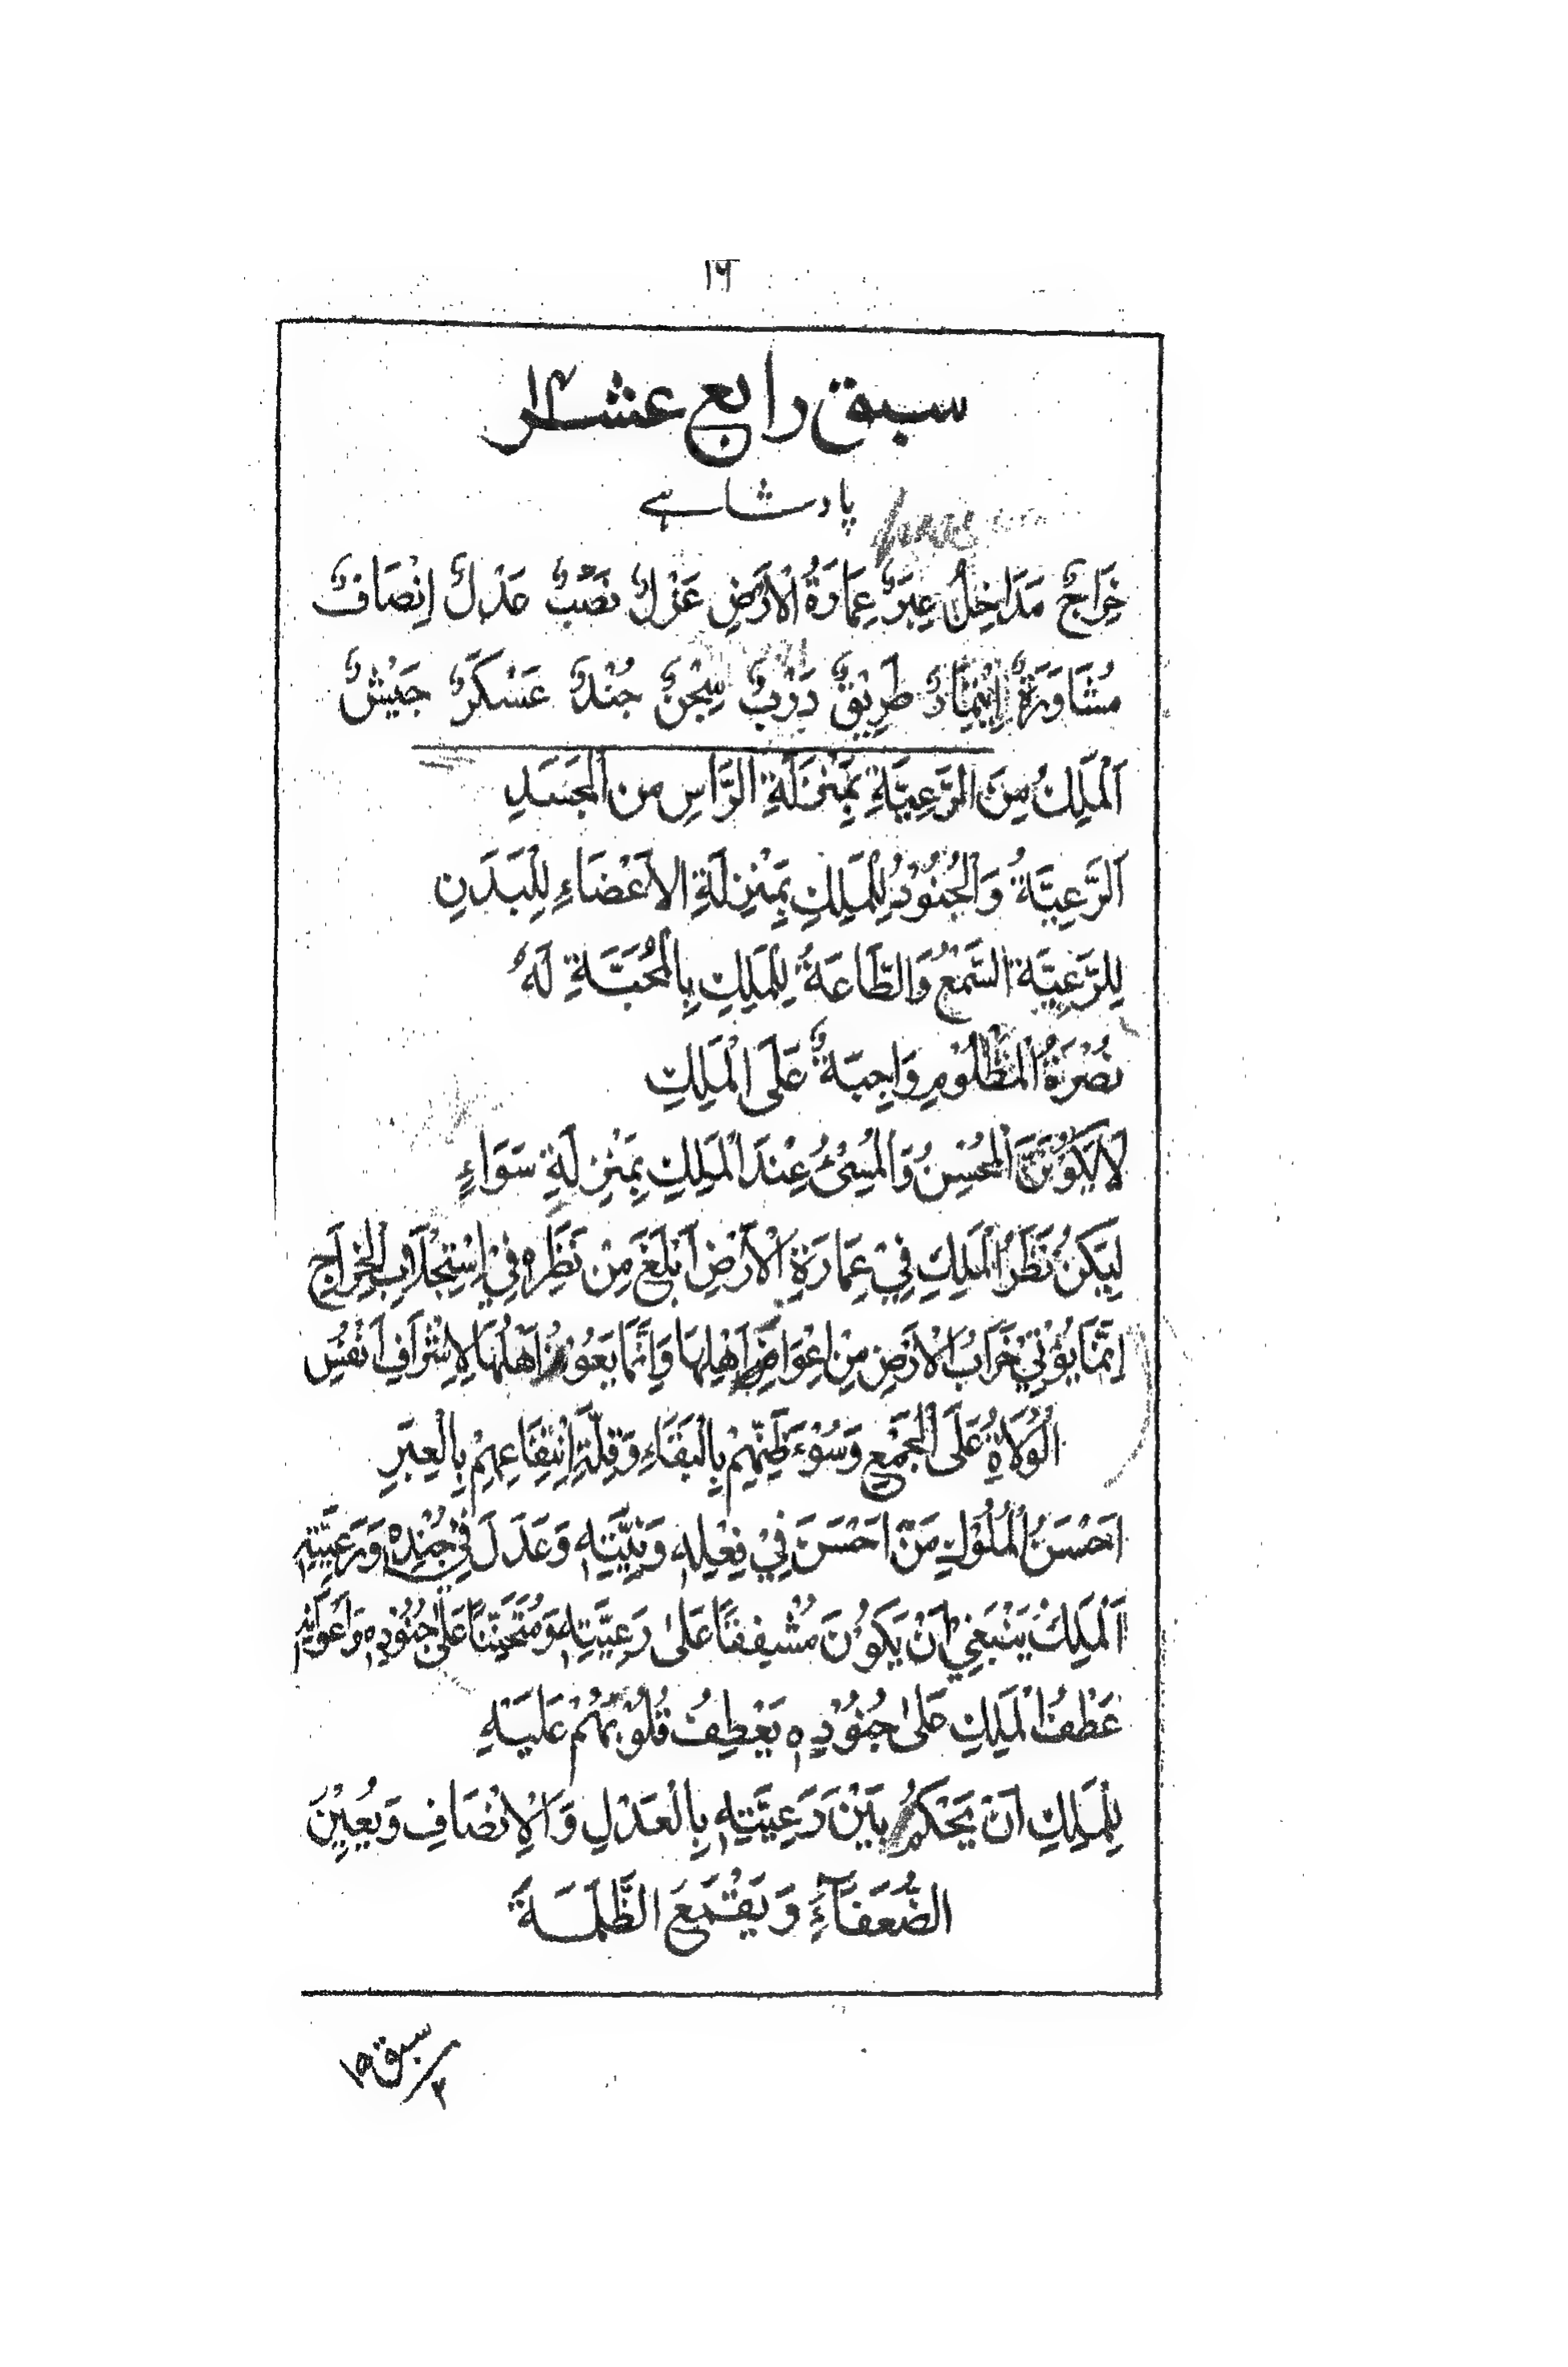 ١٦
سبق رابع عشر ١٤
پادشاہے
خَرَاجٌ مَدَاخِلُ عِبَرٌ عِمَارَةُ الْاَرْضِ عَزْلٌ نَصْبٌ عَدْلٌ اِنْصَافٌ
مُشَاوَرَةٌ اِئْتِمَارٌ طَرِيْقٌ دَرْبٌ سِجْنٌ جُنْدٌ عَسْكَرٌ جَيْشٌ
اَلْمَلِكُ مِنَ الرَّعِيَّةِ بِمَنْزِلَةِ الرَّاسِ من الْجَسَدِ
اَلرَّعِيَّةُ وَالْجُنُوْدُ لِلْمَلِكِ بِمَنْزِلَةِ الاَعْضَاءِ لِلْبَدَنِ
لِلرَّعِيَّةِ السَّمْعُ وَالطَّاعَةُ لِلْمَلِكِ بِالْمَحَبَّةِ لَهُ
نُصْرَةُ الْمَظْلُوْمِ وَاجِبَةٌ عَلَى الْمَلِكِ
لَا يَكُوْنَنَّ الْمُحْسِنُ وَالْمُسِئُ عِنْدَ الْمَلِكِ بِمَنْزِلَةِ سَوَاءٍ
لِيَكُنْ نَظَرُ الْمَلِكِ فِيْ عِمَارَةِ الْاَرْضِ اَبْلَغَ مِنْ نَظَرِهٖ فِيْ اِسْتِجْلَابِ الْخَرَاجِ
اِنَّمَا يُؤْتٰى خَرَابُ الْاَرْضِ مِنْ اِعْوَازِ اَهْلِهَا وَاِنَّمَا يَعُوْزُ اَهْلُهَا لِاِشْرَافِ اَنْفُسِ
الْوُلَاةِ عَلَى الْجَمْعِ وَسُوْءِ ظَنِّهِمْ بِالْبَقَاءِ وَقِلَّةِ اِنْتِفَاعِهِمْ بِالْعِبَرِ
اَحْسَنُ الْمُلُوْكِ مَنْ اَحْسَنَ فِيْ فِعْلِهٖ وَنِيَّتِهٖ وَعَدَلَ فِيْ جُنْدِهٖ وَرَعِيَّتِهٖ
اَلْمَلِكُ يَنْبَغِيْ اَنْ يَكُوْنَ مُشْفِقًا عَلٰى رَعِيَّتِهٖ وَمُتَحَنِّنًا عَلٰى جُنُوْدِهٖ وَاَعْوَانِهٖ
عَطْفُ الْمَلِكِ عَلٰى جُنُوْدِهٖ يَعْطِفُ قُلُوْبَهُمْ عَلَيْهِ
لِلْمَلِكِ اَنْ يَحْكُمَ بَيْنَ رَعِيَّتِهٖ بِالْعَدْلِ وَالْاِنْصَافِ وَيُعِيْنَ
الضُّعَفَآءَ وَيَقْمَعَ الظَّلَمَةَ
سبق ١٥
٣